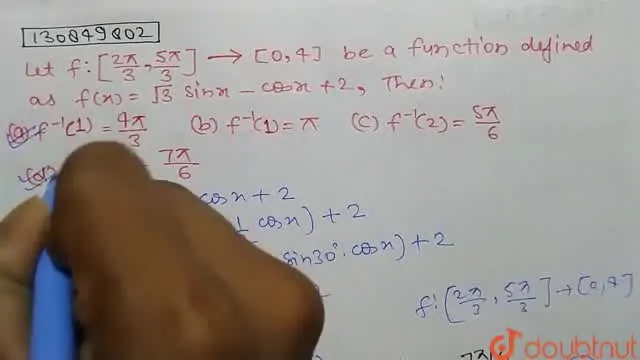 130849802
Let f: [2π/3, 5π/3] → [0,4] be a function defined
as f(x) = √3 sinx - cosx + 2, Then:
f⁻¹(1) = 4π/3 (b) f⁻¹(1) = π (c) f⁻¹(2) = 5π/6
= 7π/6
cosx + 2
cosx) + 2
sin30°. cosx) + 2
f: [2π/3, 5π/3] → [0,4]
doubtnut